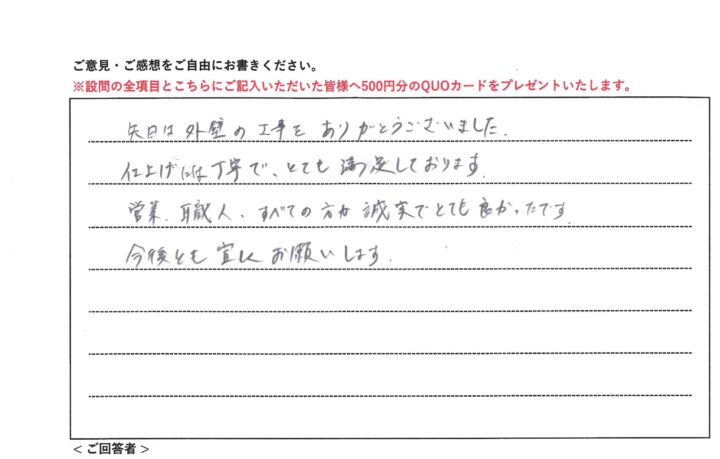 ご意見・ご感想をご自由にお書きください。
※設問の全項目とこちらにご記入いただいた皆様へ500円分のQUOカードをプレゼントいたします。
先日は外壁の工事をありがとうございました。
仕上げには丁寧で、とても満足しております。
営業、職人、すべての方が誠実でとても良かったです。
今後とも宜しくお願いします。
< ご回答者 >